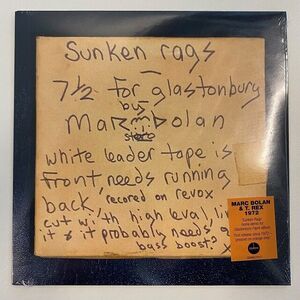 Sunken rags
7½ for glastonbury
by
Marc Bolan
stereo
white leader tape is
Front needs running
back, recored on revox
cut with high leval, li
it & it probably needs
bass boost?
MARC BOLAN
& T. REX
1972